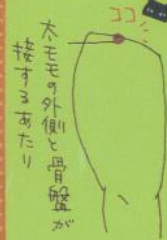 ココ
太モモの外側と骨盤が
接するあたり